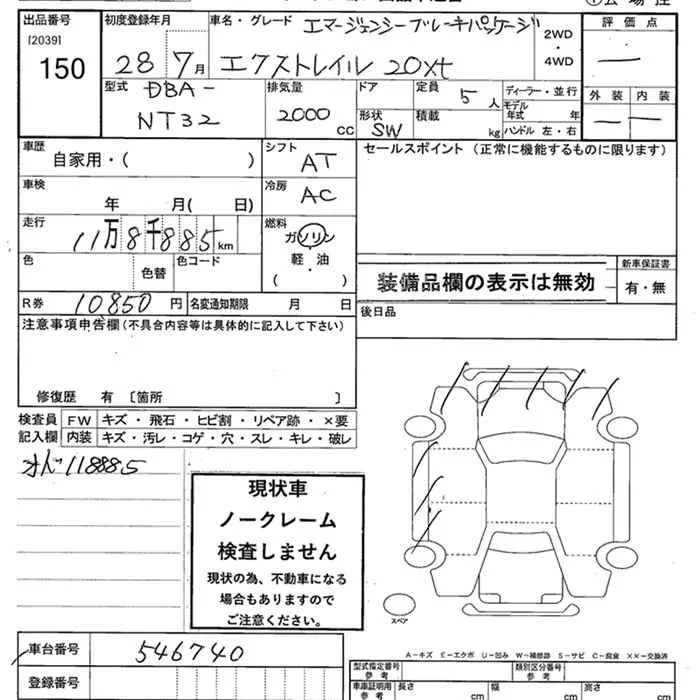 出品番号
[2039]
150
初度登録年月
28 7月
車名・グレード
エマージェンシーブレーキパッケージ
エクストレイル 20Xt
2WD
・
4WD
評価点
—
型式
DBA-
NT32
排気量
2000
CC
ドア
形状
SW
定員
5
人
積載
kg
ディーラー・並行
モデル
年式 年
ハンドル 左・右
外装 内装
— —
車歴
自家用・( )
シフト
AT
セールスポイント (正常に機能するものに限ります)
車検
年 月( 日)
冷房
AC
走行
11万8千885km
燃料
ガソリン
軽・油
・
( )
色
色替
色コード
装備品欄の表示は無効
新車保証書
有・無
R券
10850 円
名変通知期限 月 日
後日品
注意事項申告欄 (不具合内容等は具体的に記入して下さい)
修復歴 有 〔箇所 〕
検査員
記入欄
FW キズ・飛石・ヒビ割・リペア跡・×要
内装 キズ・汚レ・コゲ・穴・スレ・キレ・破レ
オド118885
現状車
ノークレーム
検査しません
現状の為、不動車になる
場合もありますので
ご注意ください。
スペア
車台番号
546740
登録番号
A-キズ E-エクボ U-凹み W-補修跡 S-サビ C-腐食 ××-交換済
型式指定番号
参考
類別区分番号
参考
車庫証明用
参考
長さ
cm
幅
cm
高さ
cm